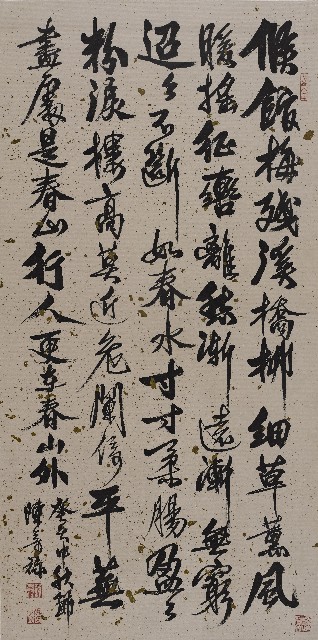 候館梅殘溪橋柳細草薰風
暖搖征轡離愁漸遠漸無窮
迢々不斷如春水寸寸柔腸盈々
粉淚樓高莫近危闌倚平蕪
盡處是春山行人更在春山外
中秋節
陳